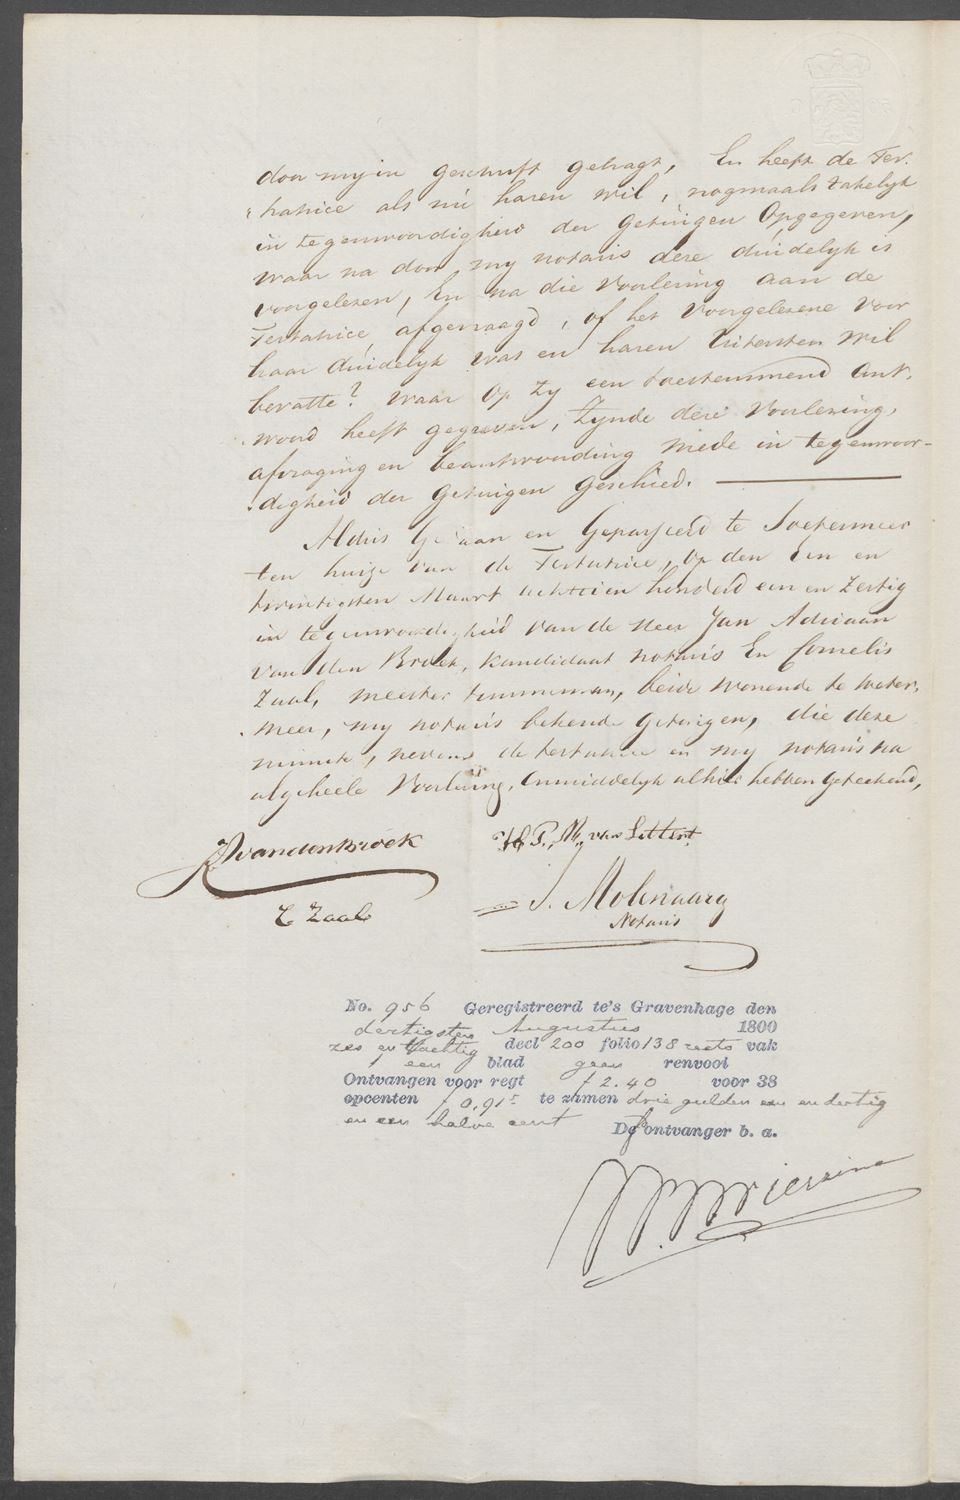 door mij in geschrift gebragt, En heeft de Tes-
tatrice als nu haren wil, nogmaals zakelijk
in tegenwoordigheid der getuigen Opgegeven,
waar na door mij notaris deze duidelijk is
voorgelezen, En na die Voorlezing aan de
Testatrice, afgevraagd, of het Voorgelezene Voor
haar duidelijk was en haren Uitersten Wil
bevatte? Waar op Zij een toestemmend Ant-
woord heeft gegeven, Zynde deze Voorlezing,
afvraging en beantwoording mede in tegenwoor-
digheid der getuigen geschied.
Aldus Gedaan en Gepasseerd te Soetermeer
ten huize van de Testatrice, op den Een en
twintigsten Maart achttien honderd een en Zestig
in tegenwoordigheid van de Heer Jan Adriaan
van den Broek, kandidaat notaris En Cornelis
Zaal, meester timmerman, beide wonende te Soeter-
meer, mij notaris bekende getuigen, die deze
minute, nevens de testatrice en mij notaris na
algeheele Voorlezing, Onmiddelijk alhier hebben geteekend,
JA vandenBroek
P. M. van Lettert
C Zaal
J. Molenaar
Notaris
No. 956 Geregistreerd te's Gravenhage den
dertigsten Augustus 1800
zes en tachtig deel 200 folio 138 recto vak
1 een blad geen renvooi
Ontvangen voor regt f 2.40 voor 38
opcenten f 0,91⁵ te zamen drie gulden een en dertig
en een halve cent De ontvanger b. a.